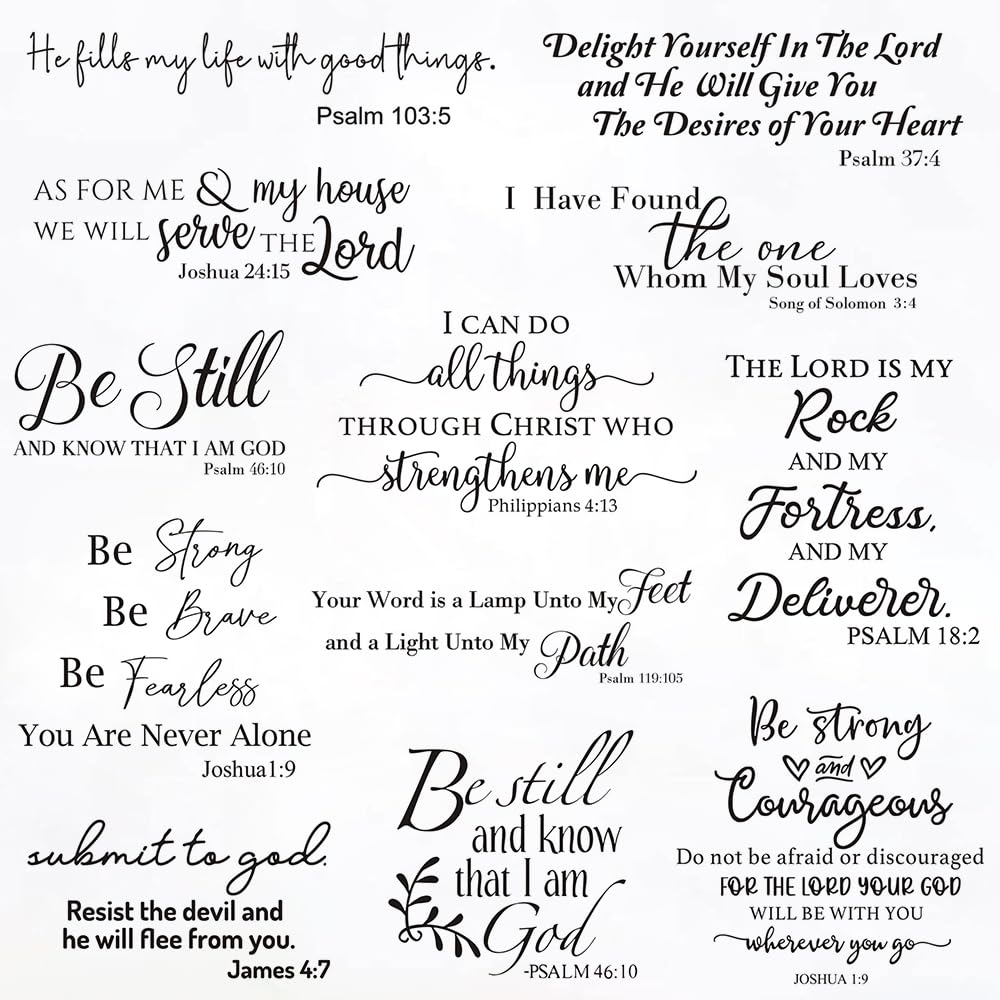 He fills my life with good things.
Psalm 103:5
Delight Yourself In The Lord
and He Will Give You
The Desires of Your Heart
Psalm 37:4
AS FOR ME & my house
WE WILL serve THE Lord
Joshua 24:15
I Have Found
the one
Whom My Soul Loves
Song of Solomon 3:4
Be Still
AND KNOW THAT I AM GOD
Psalm 46:10
I CAN DO
all things
THROUGH CHRIST WHO
strengthens me
Philippians 4:13
THE LORD IS MY
Rock
AND MY
Fortress,
AND MY
Deliverer.
PSALM 18:2
Be Strong
Be Brave
Be Fearless
You Are Never Alone
Joshua1:9
Your Word is a Lamp Unto My Feet
and a Light Unto My Path
Psalm 119:105
Be strong
and
Courageous
Do not be afraid or discouraged
FOR THE LORD YOUR GOD
WILL BE WITH YOU
wherever you go
JOSHUA 1:9
submit to god.
Resist the devil and
he will flee from you.
James 4:7
Be still
and know
that I am
God
-PSALM 46:10